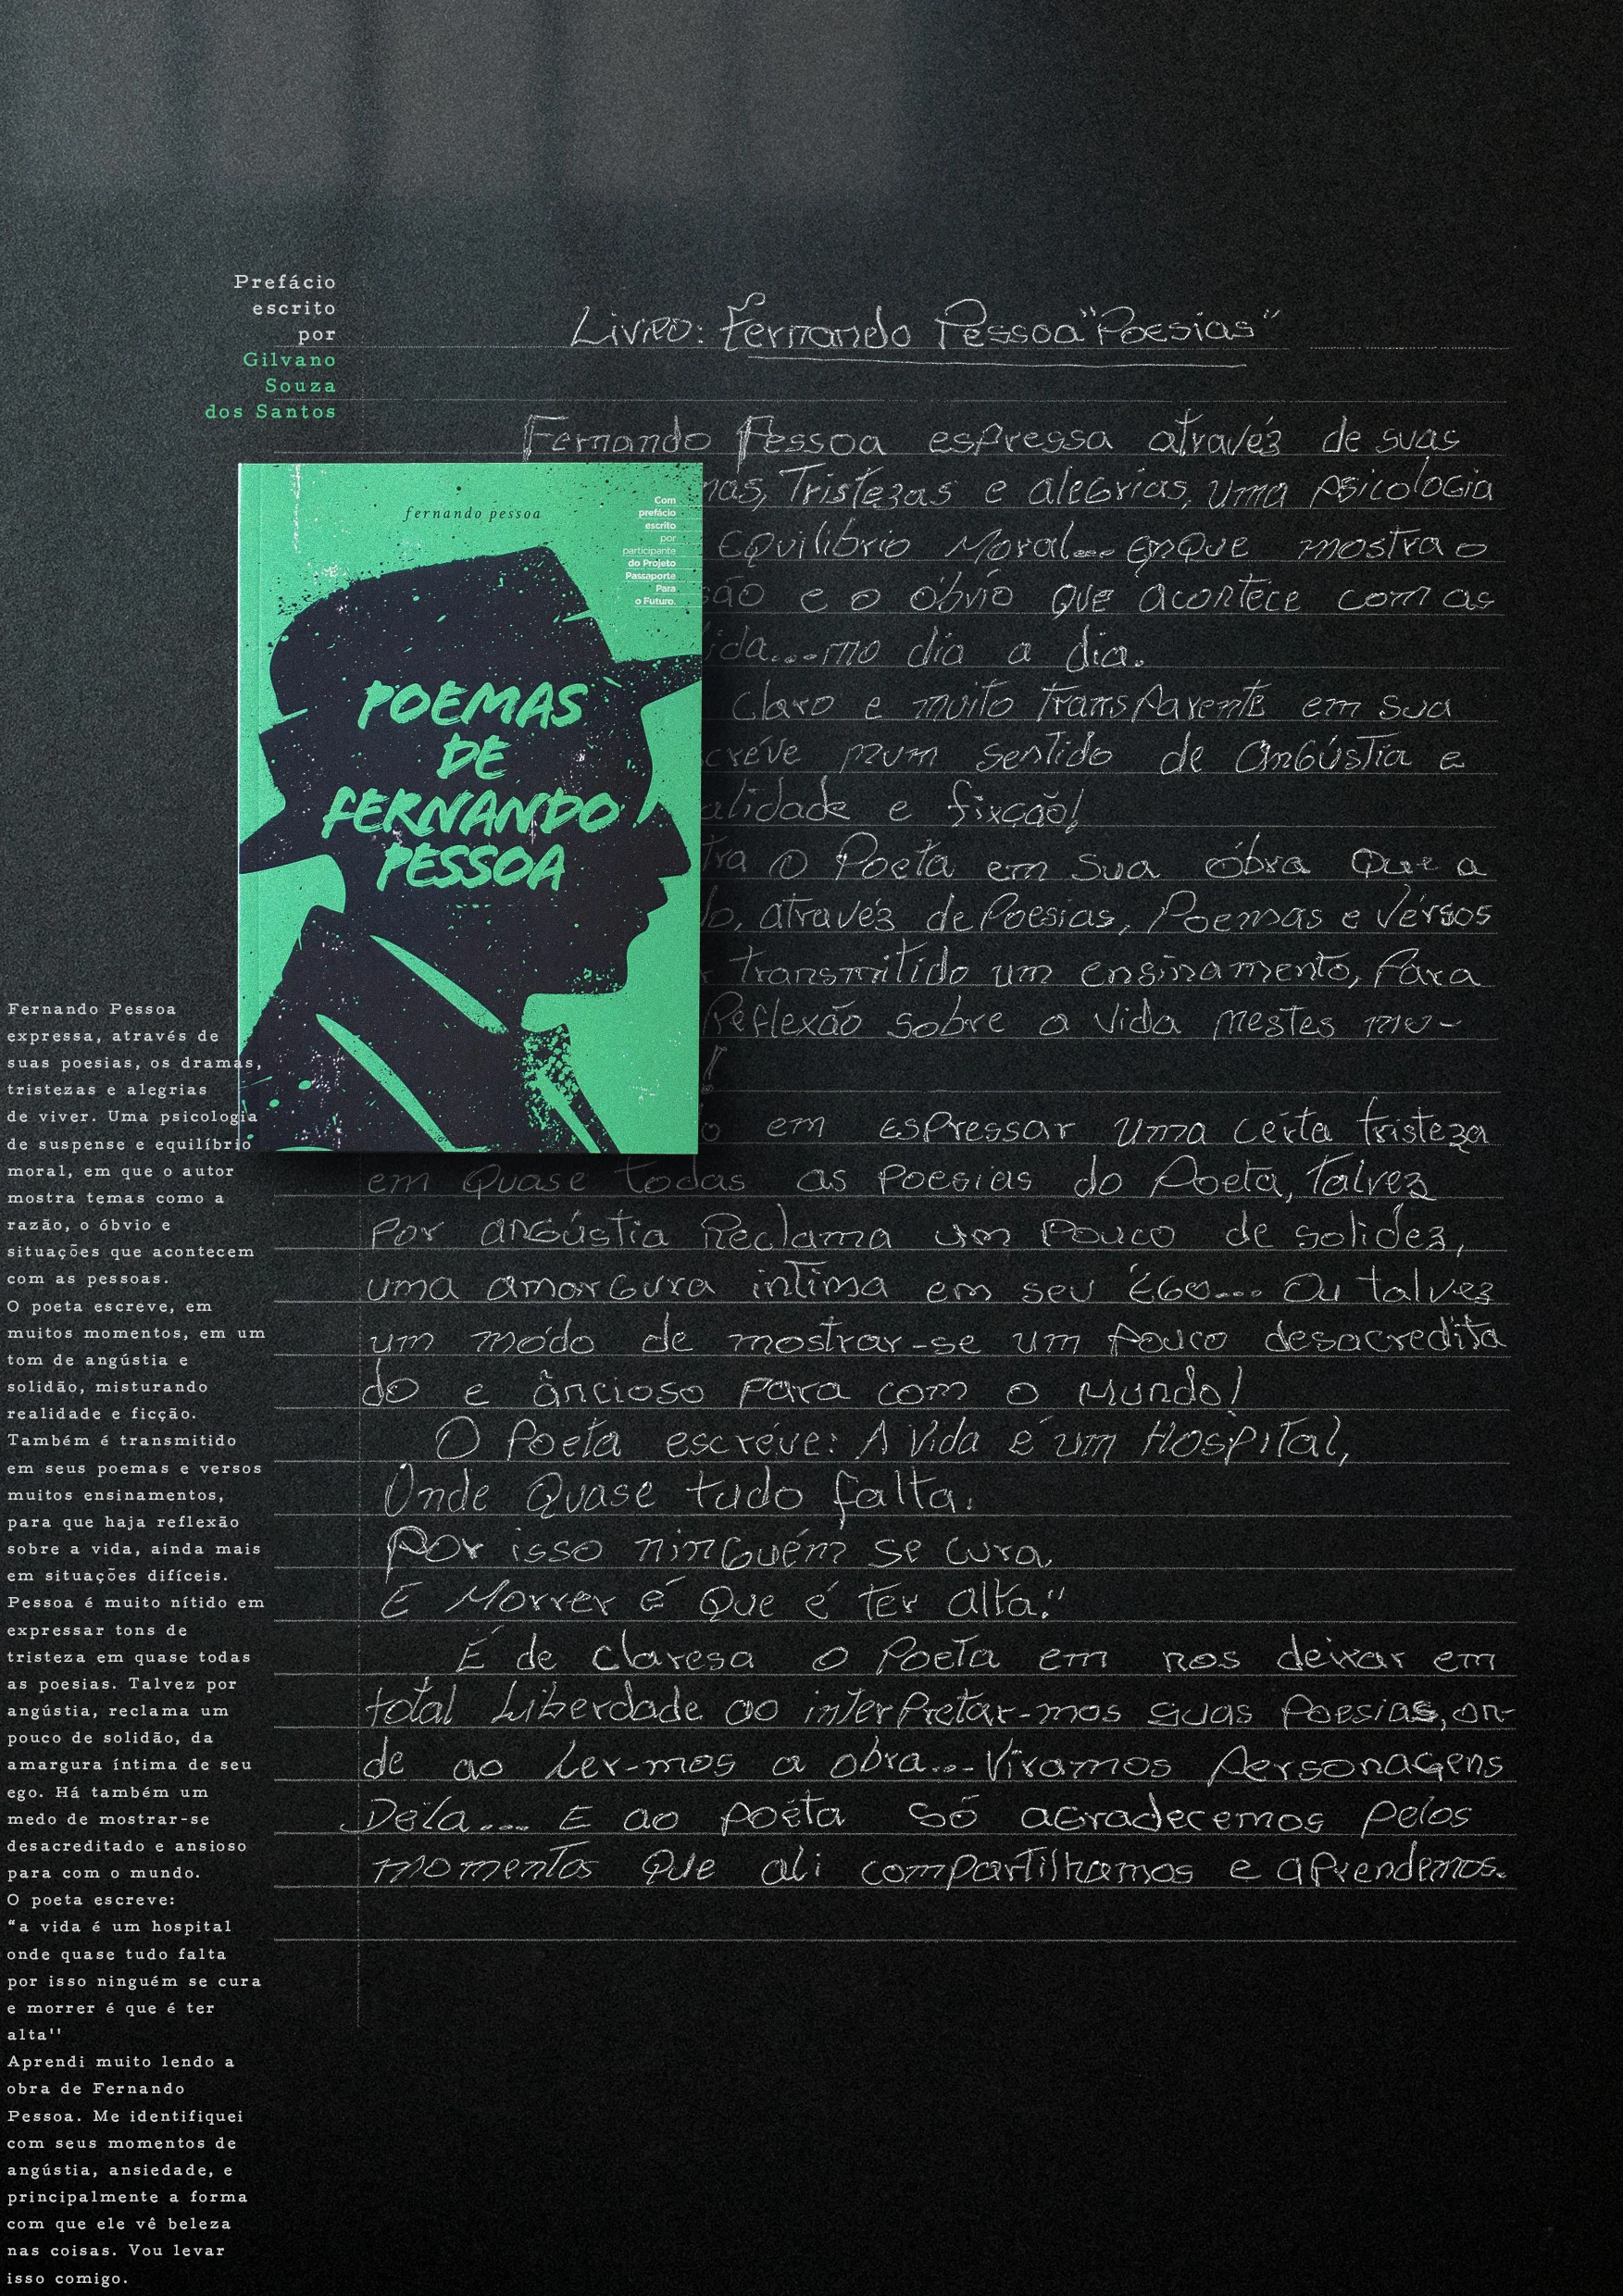 Prefácio
escrito
por
Gilvano
Souza
dos Santos
Livro: Fernando Pessoa "Poesias"
Fernando Pessoa espressa atravéz de suas
Tristezas e alegrias, uma psicologia
Equilíbrio Moral... emque mostra o
e o óbvio que acontece com as
mo dia a dia.
Claro e muito transparente em sua
num sentido de angústia e
e fixcão!
O Poeta em sua óbra Que a
atravéz de Poesias, Poemas e vérsos
transmitido um ensinamento, para
Reflexão sobre a vida nestes mo-
!
em espressar uma certa tristeza
em Quase todas as poesias do Poeta, talvez
por angústia Reclama um pouco de solidez,
uma amorgura intima em seu Égo... Ou talvez
um módo de mostrar-se um pouco desacredita
do e âncioso para com o Mundo!
O Poeta escréve: A Vida é um Hospital,
Onde Quase tudo falta.
Por isso ninguém se cura
E Morrer é Que é ter alta."
É de claresa o Poeta em nos deixar em
total Liberdade ao interpretar-mos suas Poesias, on-
de ao Ler-mos a obra... Viramos Personagens
Déla... E ao poéta só agradecemos pelos
momentos Que ali compartilhamos e aprendemos.
fernando pessoa
Com
prefácio
escrito
por
participante
do Projeto
Passaporte
Para
o Futuro.
POEMAS
DE
FERNANDO
PESSOA
Fernando Pessoa
expressa, através de
suas poesias, os dramas,
tristezas e alegrias
de viver. Uma psicologia
de suspense e equilíbrio
moral, em que o autor
mostra temas como a
razão, o óbvio e
situações que acontecem
com as pessoas.
O poeta escreve, em
muitos momentos, em um
tom de angústia e
solidão, misturando
realidade e ficção.
Também é transmitido
em seus poemas e versos
muitos ensinamentos,
para que haja reflexão
sobre a vida, ainda mais
em situações difíceis.
Pessoa é muito nítido em
expressar tons de
tristeza em quase todas
as poesias. Talvez por
angústia, reclama um
pouco de solidão, da
amargura íntima de seu
ego. Há também um
medo de mostrar-se
desacreditado e ansioso
para com o mundo.
O poeta escreve:
“a vida é um hospital
onde quase tudo falta
por isso ninguém se cura
e morrer é que é ter
alta''
Aprendi muito lendo a
obra de Fernando
Pessoa. Me identifiquei
com seus momentos de
angústia, ansiedade, e
principalmente a forma
com que ele vê beleza
nas coisas. Vou levar
isso comigo.